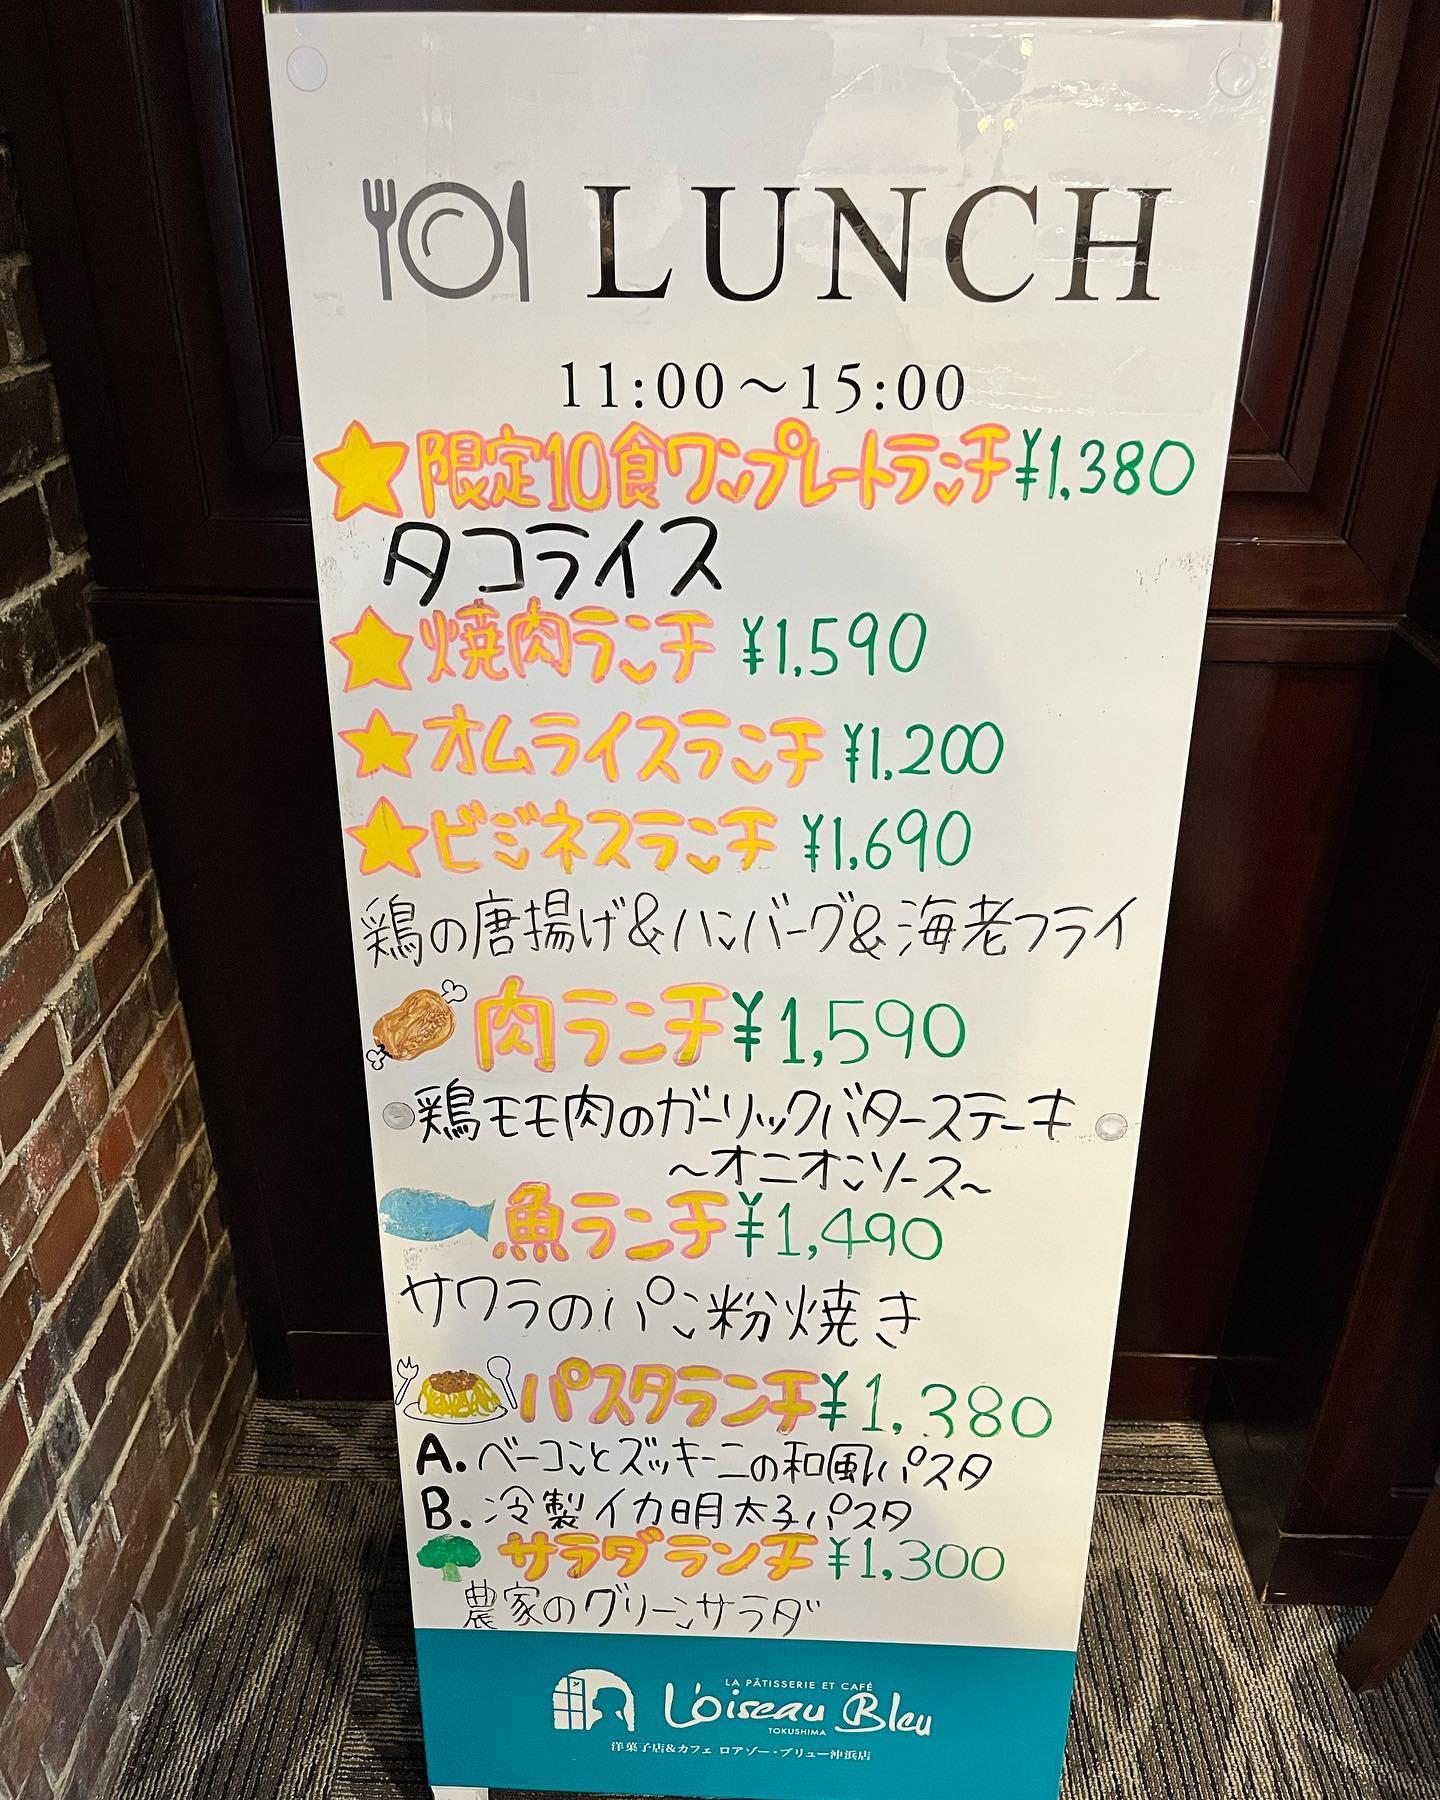 LUNCH
11:00～15:00
限定10食ワンプレートランチ ¥1,380
タコライス
焼肉ランチ ¥1,590
オムライスランチ ¥1,200
ビジネスランチ ¥1,690
鶏の唐揚げ&ハンバーグ&海老フライ
肉ランチ ¥1,590
鶏モモ肉のガーリックバターステーキ
～オニオンソース～
魚ランチ ¥1,490
サワラのパン粉焼き
パスタランチ ¥1,380
A. ベーコンとズッキーニの和風パスタ
B. 冷製イカ明太子パスタ
サラダランチ ¥1,300
農家のグリーンサラダ
LA PÂTISSERIE ET CAFÉ
L'oiseau Bleu
TOKUSHIMA
洋菓子店&カフェ ロアゾー・ブリュー沖浜店